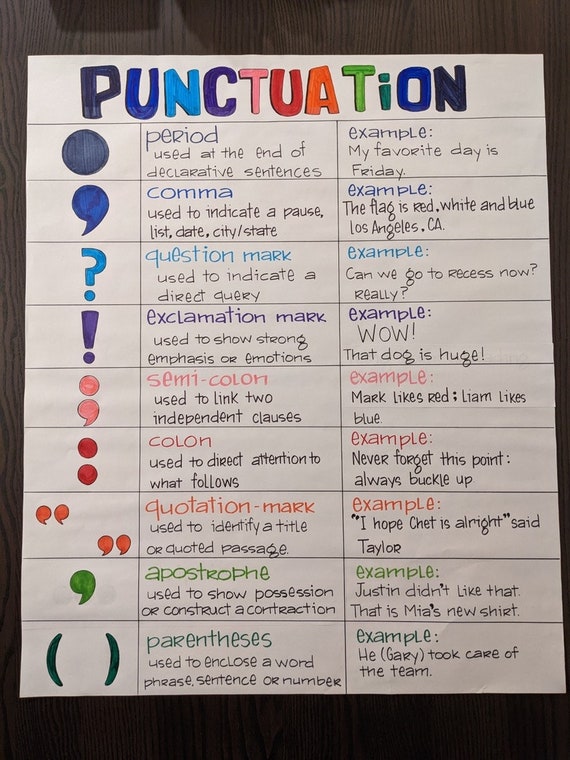 PUNCTUATiON
period
used at the end of
declarative sentences
example:
My favorite day is
Friday.
comma
used to indicate a pause,
list, date, city/state
example:
The flag is red, white and blue
Los Angeles, CA.
?
question mark
used to indicate a
direct query
example:
Can we go to recess now?
Really?
!
exclamation mark
used to show strong
emphasis or emotions
example:
WOW!
That dog is huge!
;
semi-colon
used to link two
independent clauses
example:
Mark likes red; liam likes
blue.
:
colon
used to direct attention to
what follows
example:
Never forget this point:
always buckle up
” ”
quotation-mark
used to identify a title
or quoted passage.
example:
"I hope Chet is alright" said
Taylor
’
apostrophe
used to show possession
or construct a contraction
example:
Justin didn't like that.
That is Mia's new shirt.
( )
parentheses
used to enclose a word
phrase, sentence or number
example:
He (Gary) took care of
the team.